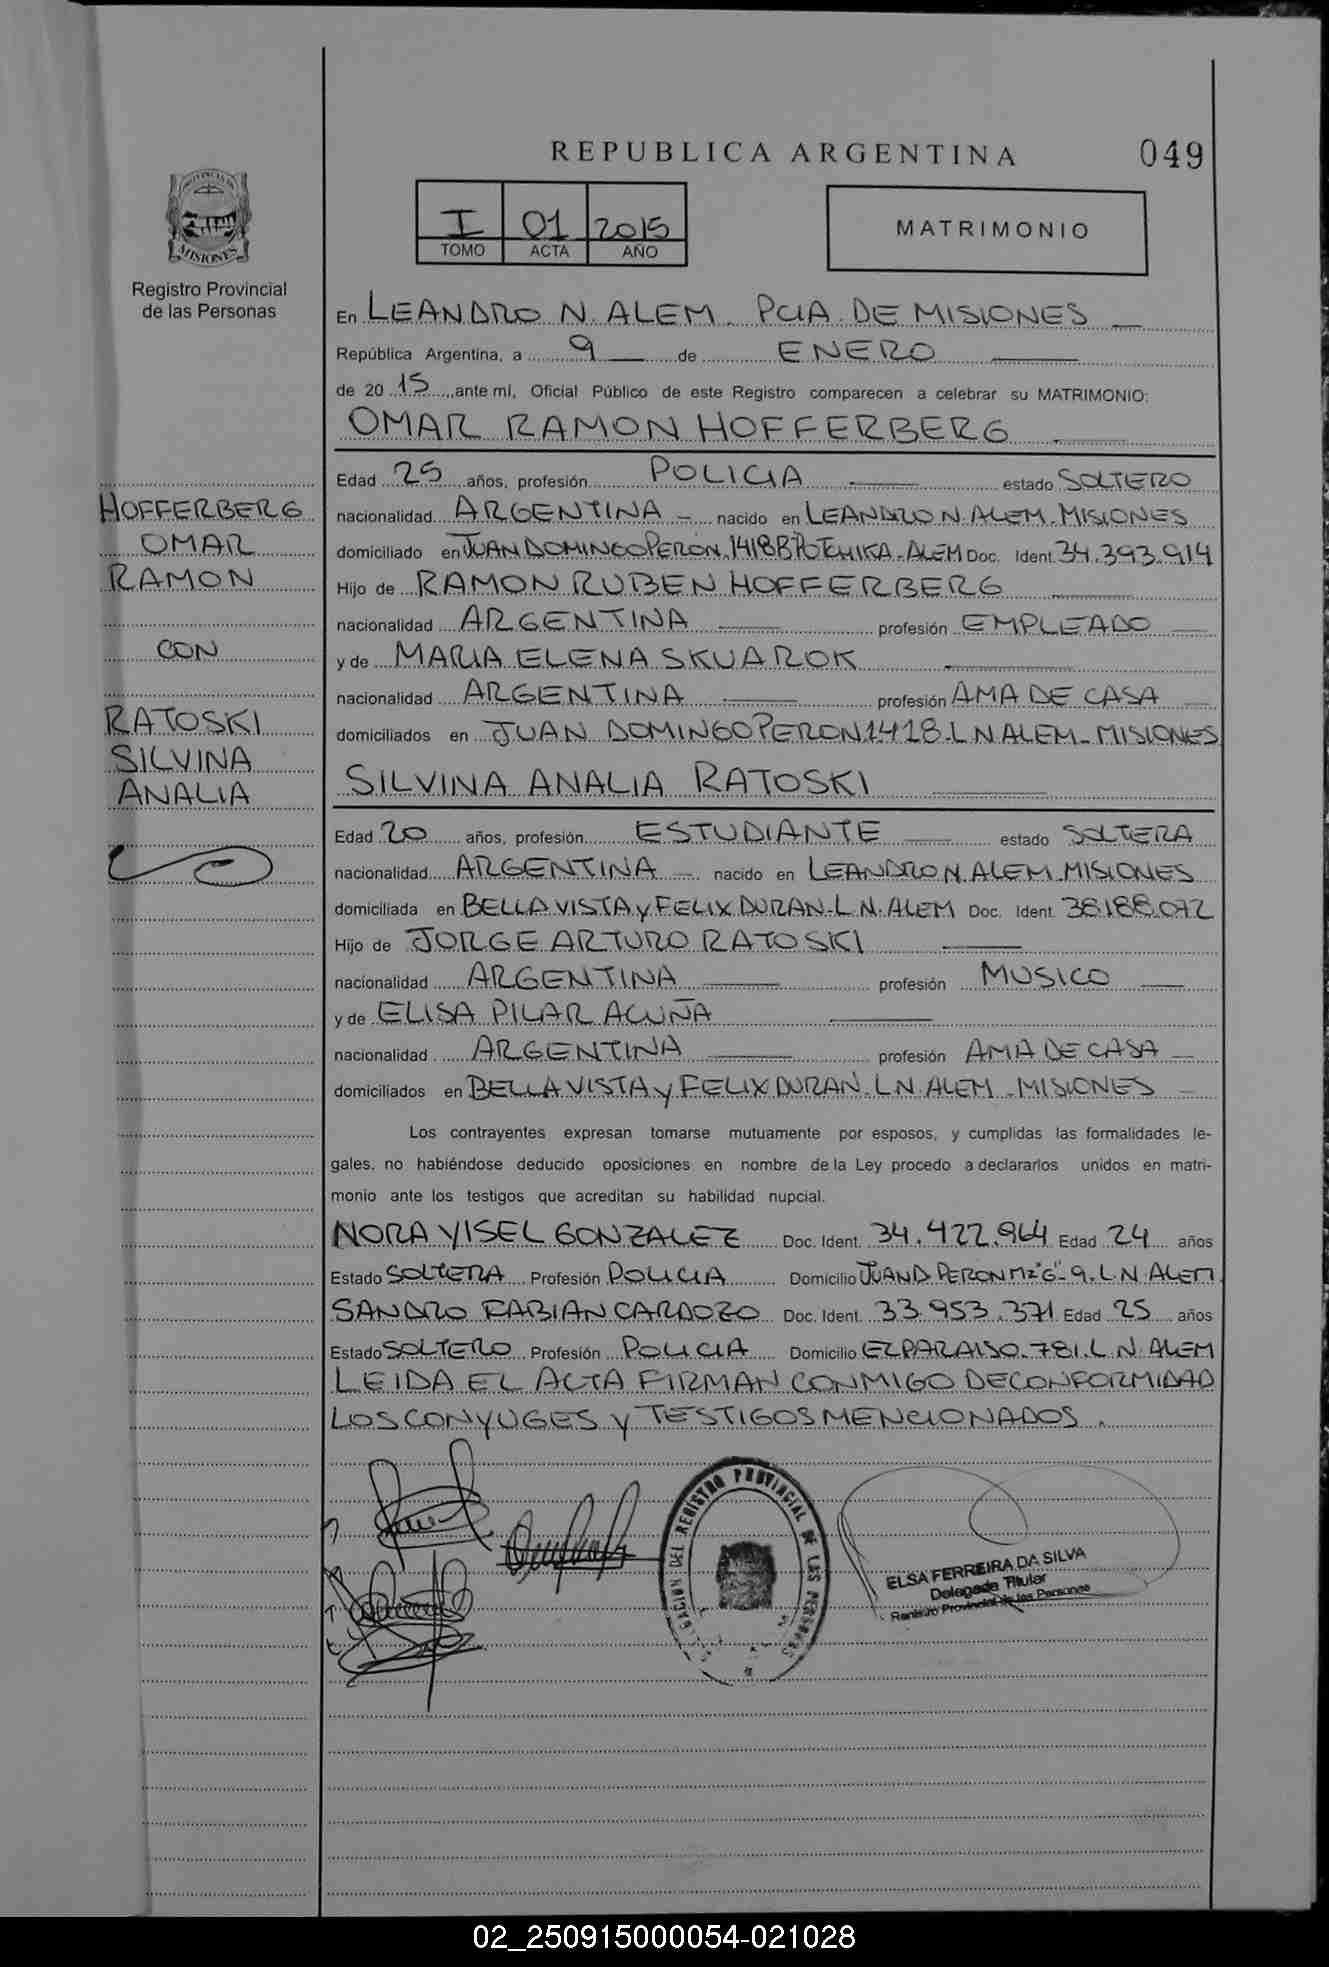 REPUBLICA ARGENTINA
049
I 01 2015
TOMO ACTA AÑO
MATRIMONIO
PROVINCIA DE
MISIONES
Registro Provincial
de las Personas
En LEANDRO N. ALEM. PCIA. DE MISIONES
República Argentina, a 9 de ENERO
de 2015, ante mí, Oficial Público de este Registro comparecen a celebrar su MATRIMONIO:
OMAR RAMON HOFFERBERG
Edad 25 años, profesión POLICIA estado SOLTERO
nacionalidad ARGENTINA - nacido en LEANDRO N. ALEM. MISIONES
domiciliado en JUAN DOMINGO PERON. 1418 Bº - ALEM Doc. Ident. 34.393.914
Hijo de RAMON RUBEN HOFFERBERG
nacionalidad ARGENTINA profesión EMPLEADO
y de MARIA ELENA SKUAROK
nacionalidad ARGENTINA profesión AMA DE CASA
domiciliados en JUAN DOMINGO PERON 1418. L N ALEM - MISIONES
SILVINA ANALIA RATOSKI
Edad 20 años, profesión ESTUDIANTE estado SOLTERA
nacionalidad ARGENTINA - nacido en LEANDRO N. ALEM. MISIONES
domiciliada en BELLA VISTA y FELIX DURAN. L. N. ALEM Doc. Ident. 38.188.072
Hijo de JORGE ARTURO RATOSKI
nacionalidad ARGENTINA profesión MUSICO
y de ELISA PILAR ACUÑA
nacionalidad ARGENTINA profesión AMA DE CASA
domiciliados en BELLA VISTA y FELIX DURAN. L.N. ALEM - MISIONES
HOFFERBERG
OMAR
RAMON
CON
RATOSKI
SILVINA
ANALIA
Los contrayentes expresan tomarse mutuamente por esposos, y cumplidas las formalidades le-
gales, no habiéndose deducido oposiciones en nombre de la Ley procedo a declararlos unidos en matri-
monio ante los testigos que acreditan su habilidad nupcial.
NORA YISEL GONZALEZ Doc. Ident. 34.422.964 Edad 24 años
Estado SOLTERA Profesión POLICIA Domicilio JUAN D. PERON Mz "G" - 9. L. N. ALEM
SANDRO FABIAN CARDOZO Doc. Ident. 33.953.371 Edad 25 años
Estado SOLTERO Profesión POLICIA Domicilio EL PARAISO. 781. L. N. ALEM
LEIDA EL ACTA FIRMAN CONMIGO DE CONFORMIDAD
LOS CONYUGES y TESTIGOS MENCIONADOS.
DELEGACION DEL REGISTRO PROVINCIAL DE LAS PERSONAS
ELSA FERREIRA DA SILVA
Delegada Titular
Registro Provincial de las Personas
02_250915000054-021028